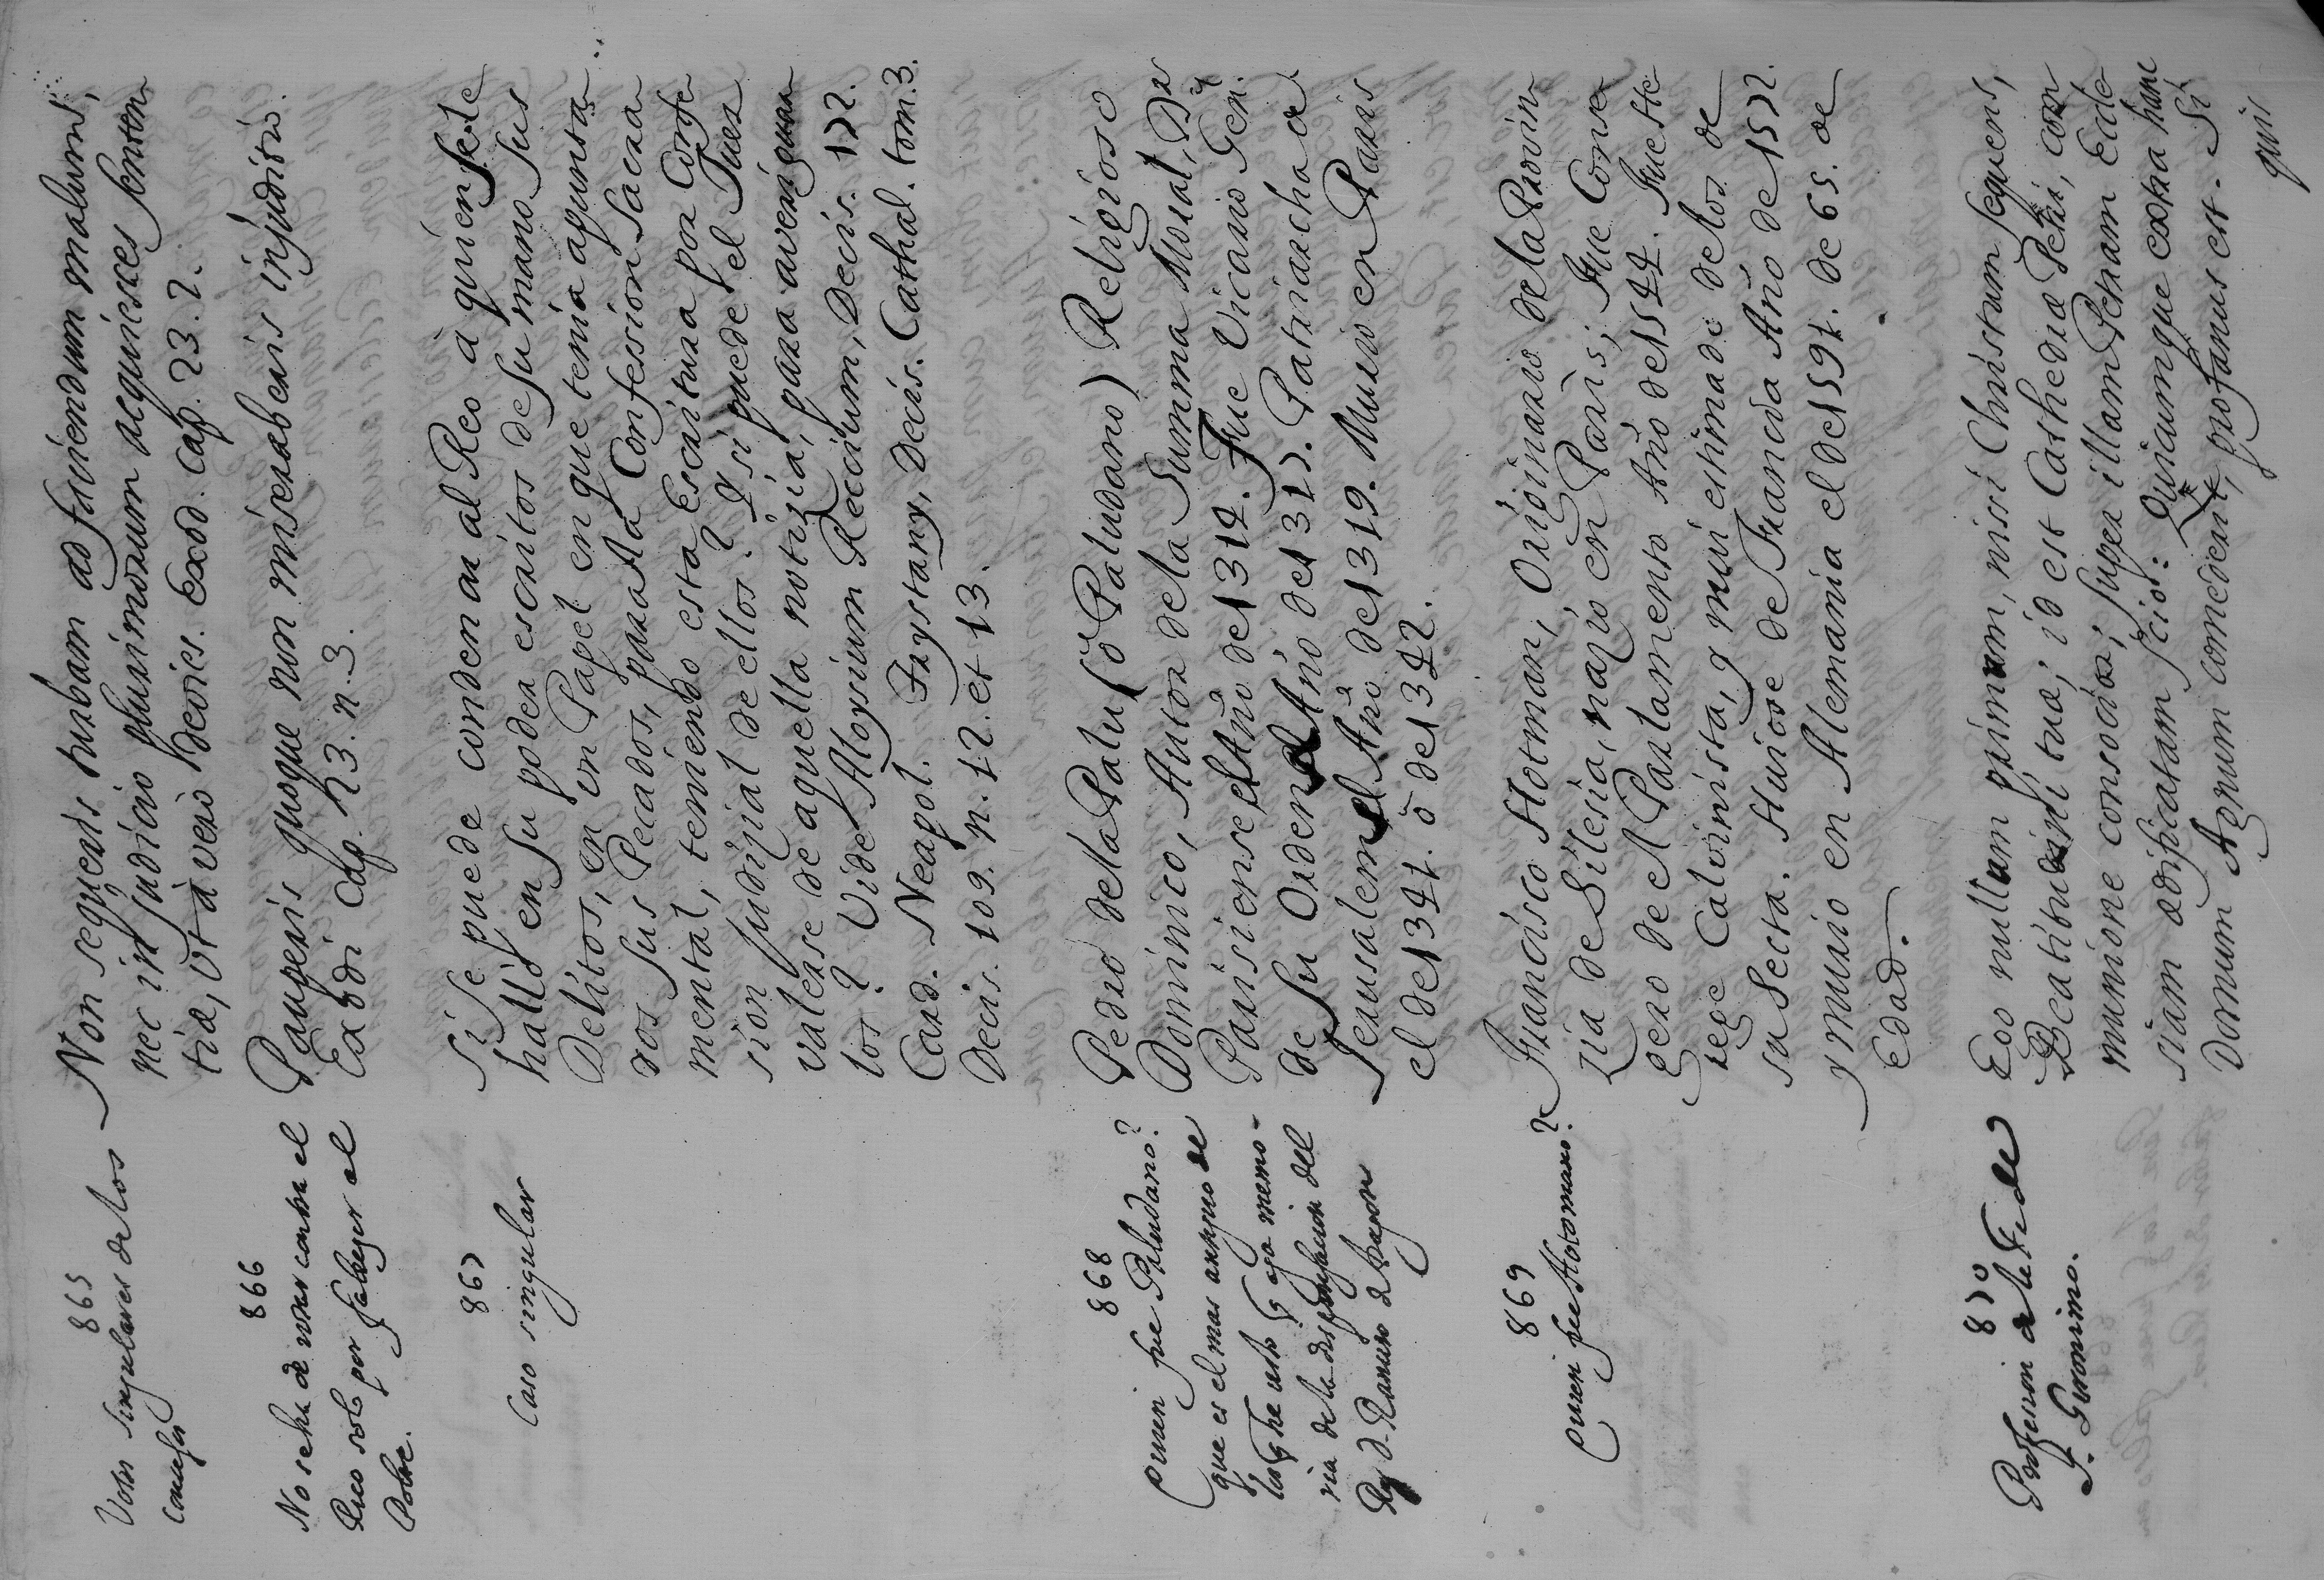 865
Votos singulares de los
Non sequeris turbam ad faciendum malum,
nec in judicio plurimorum acquiesces senten
tiæ, ut à vero devies. Exod. Cap. 23. 2.
866
No se ha de votar contra el
Rico solo por favorecer al
Pobre.
Pauperis quoque non misereberis in judicio.
Exodi Cap. 23. n. 3.
867
Caso singular
Si se puede condenar al Reo à quien se le
halló en su poder escritos de su mano sus
Delitos, en un Papel en que tenia apunta
dos sus Pecados, para la Confession Sacra
mental, teniendo esta Escritura por Confe
sion judizial de ellos? Y si puede el Juez
valerse de aquella notizia, para averiguar
los? Vide Aloysium Riccium, Decis. 172.
Card. Neapol. Frystany, Decis. Cathal. tom. 3.
Decis. 109. n. 12. et 13.
868
Quien fue Paludano?
que es el mas antiguo de
los q̃ he visto q̃ haga memo-
ria de la
Rey d. Ramiro de Aragon
Pedro de la Palu (ò Paludano) Religioso
Dominico, Autor de la Summa Moral, Dr
Parisiense el Año de 1314. Fue Vicario Gen.
de su Orden el Año de 1317. Patriarcha de
Jerusalem el Año de 1319. Murio en Paris
el de 1341. ò de 1342.
869
Quien fue Hotomano?
Francisco Hotman, Originario de la Provin
zia de Silesia, nazio en Paris; Fue Conse
gero de el Parlamento Año de 1544. Fue Ste
rege Calvinista, y mui estimado de los de
su Secta. Huiose de Francia Año de 1572.
y murio en Alemania el de 1591. de 65. de
Edad.
870
Profession de la Fe de
S. Geronimo.
Ego nullum primum, nisi Christum sequens,
Beatitudini tuæ; id est Cathedræ Petri, com
munione consocior; super illam Petram Eccle
siam ædificatam scio: Quicumque extra hanc
Domum Agnum comederit, profanus est. Si
quis